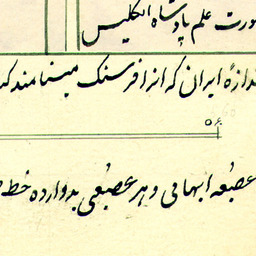 صورت علم پادشاه انگلیس
اندازهٔ ایران که انرا فرسنک مینامند که
۵۶
عصبعه ابهامی و هر عصبعی بدوازده خط و